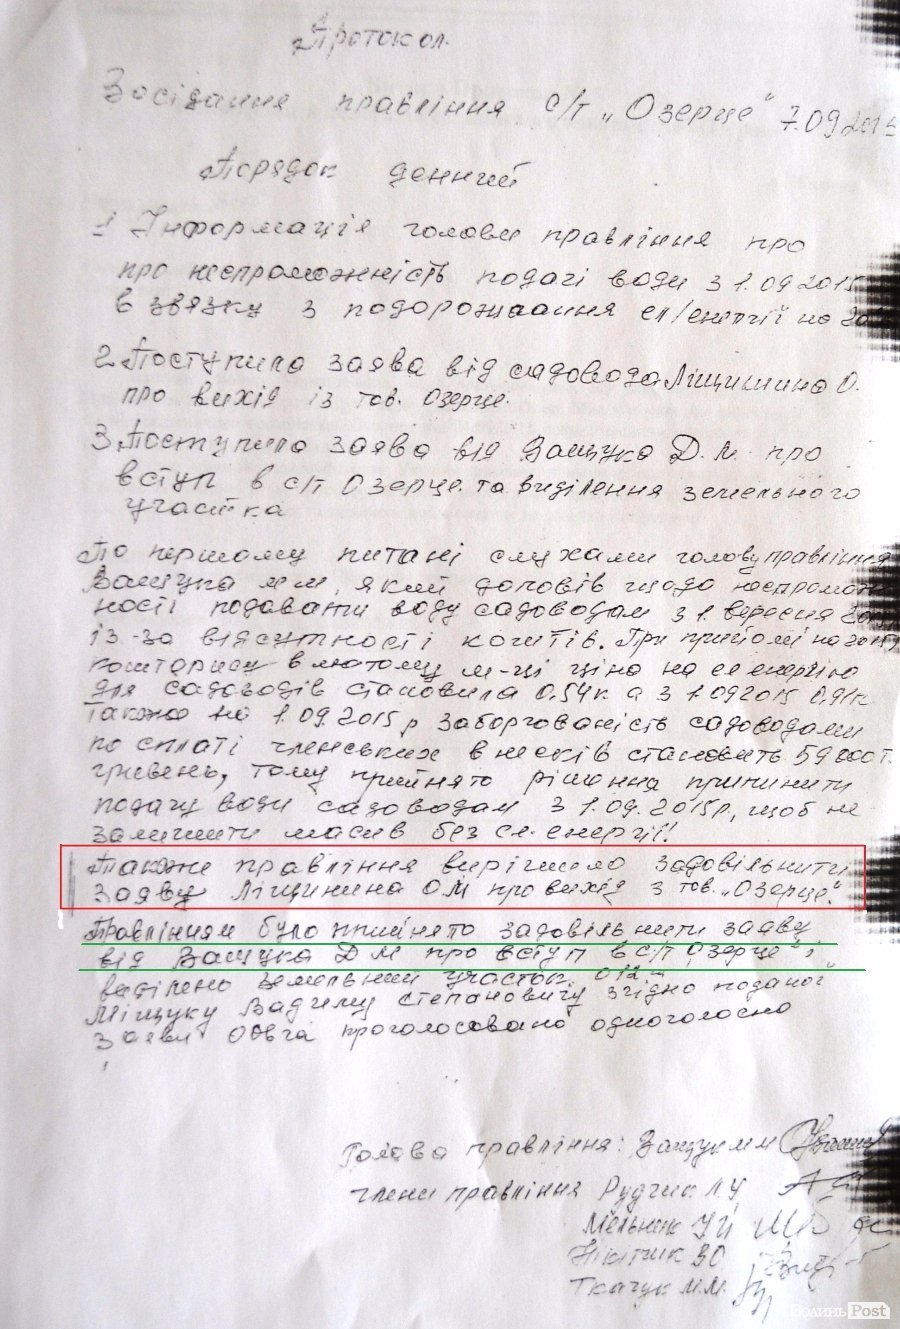 Протокол.
Засідання правління с/т „Озерце" 7.09 2015
Порядок денний
1 Інформація голови правління про
про неспроможність подачі води з 1.09 2015
в звязку з подорожчання ел/енергії на
2 Поступила заява від садовода Ліщишина О.
про вихід із тов. Озерце.
3 Поступила заява від Ващука Д.М. про
вступ в с/т Озерце та виділення земельного
участка
По першому питані слухали голову правління
Ващука М м, який доповів щодо неспромож
ності подавати воду садоводам з 1. вересня
із-за відсутності коштів. При прийомі на 2015р
кошторису в лютому м-ці ціна на ел енергію
для садоводів становила 0.54к а з 1.09 2015 0,91к
також на 1.09.2015 р заборгованість садоводами
по сплаті членських внесків становить 59 000 т.
гривень, тому прийнято рішення припинити
подачу води садоводам з 1.09.2015р, щоб не
залишити масив без ел. енергії!
Також правління вирішило задовільнити
заяву Ліщинина О М про вихід з тов. „Озерце".
Правлінням було прийнято задовільнити заяву
від Ващука Д М про вступ в с/т Озерце" і
виділено земельний участок
Міщуку Вадиму Степановичу згідно поданої
заяви проголосовано одноголосно
Голова правління: Ващук м м
члени правління Рудчик Л.У
Мельник У Й
Нікітчик В О
Ткачук М.М.
Волинь Post